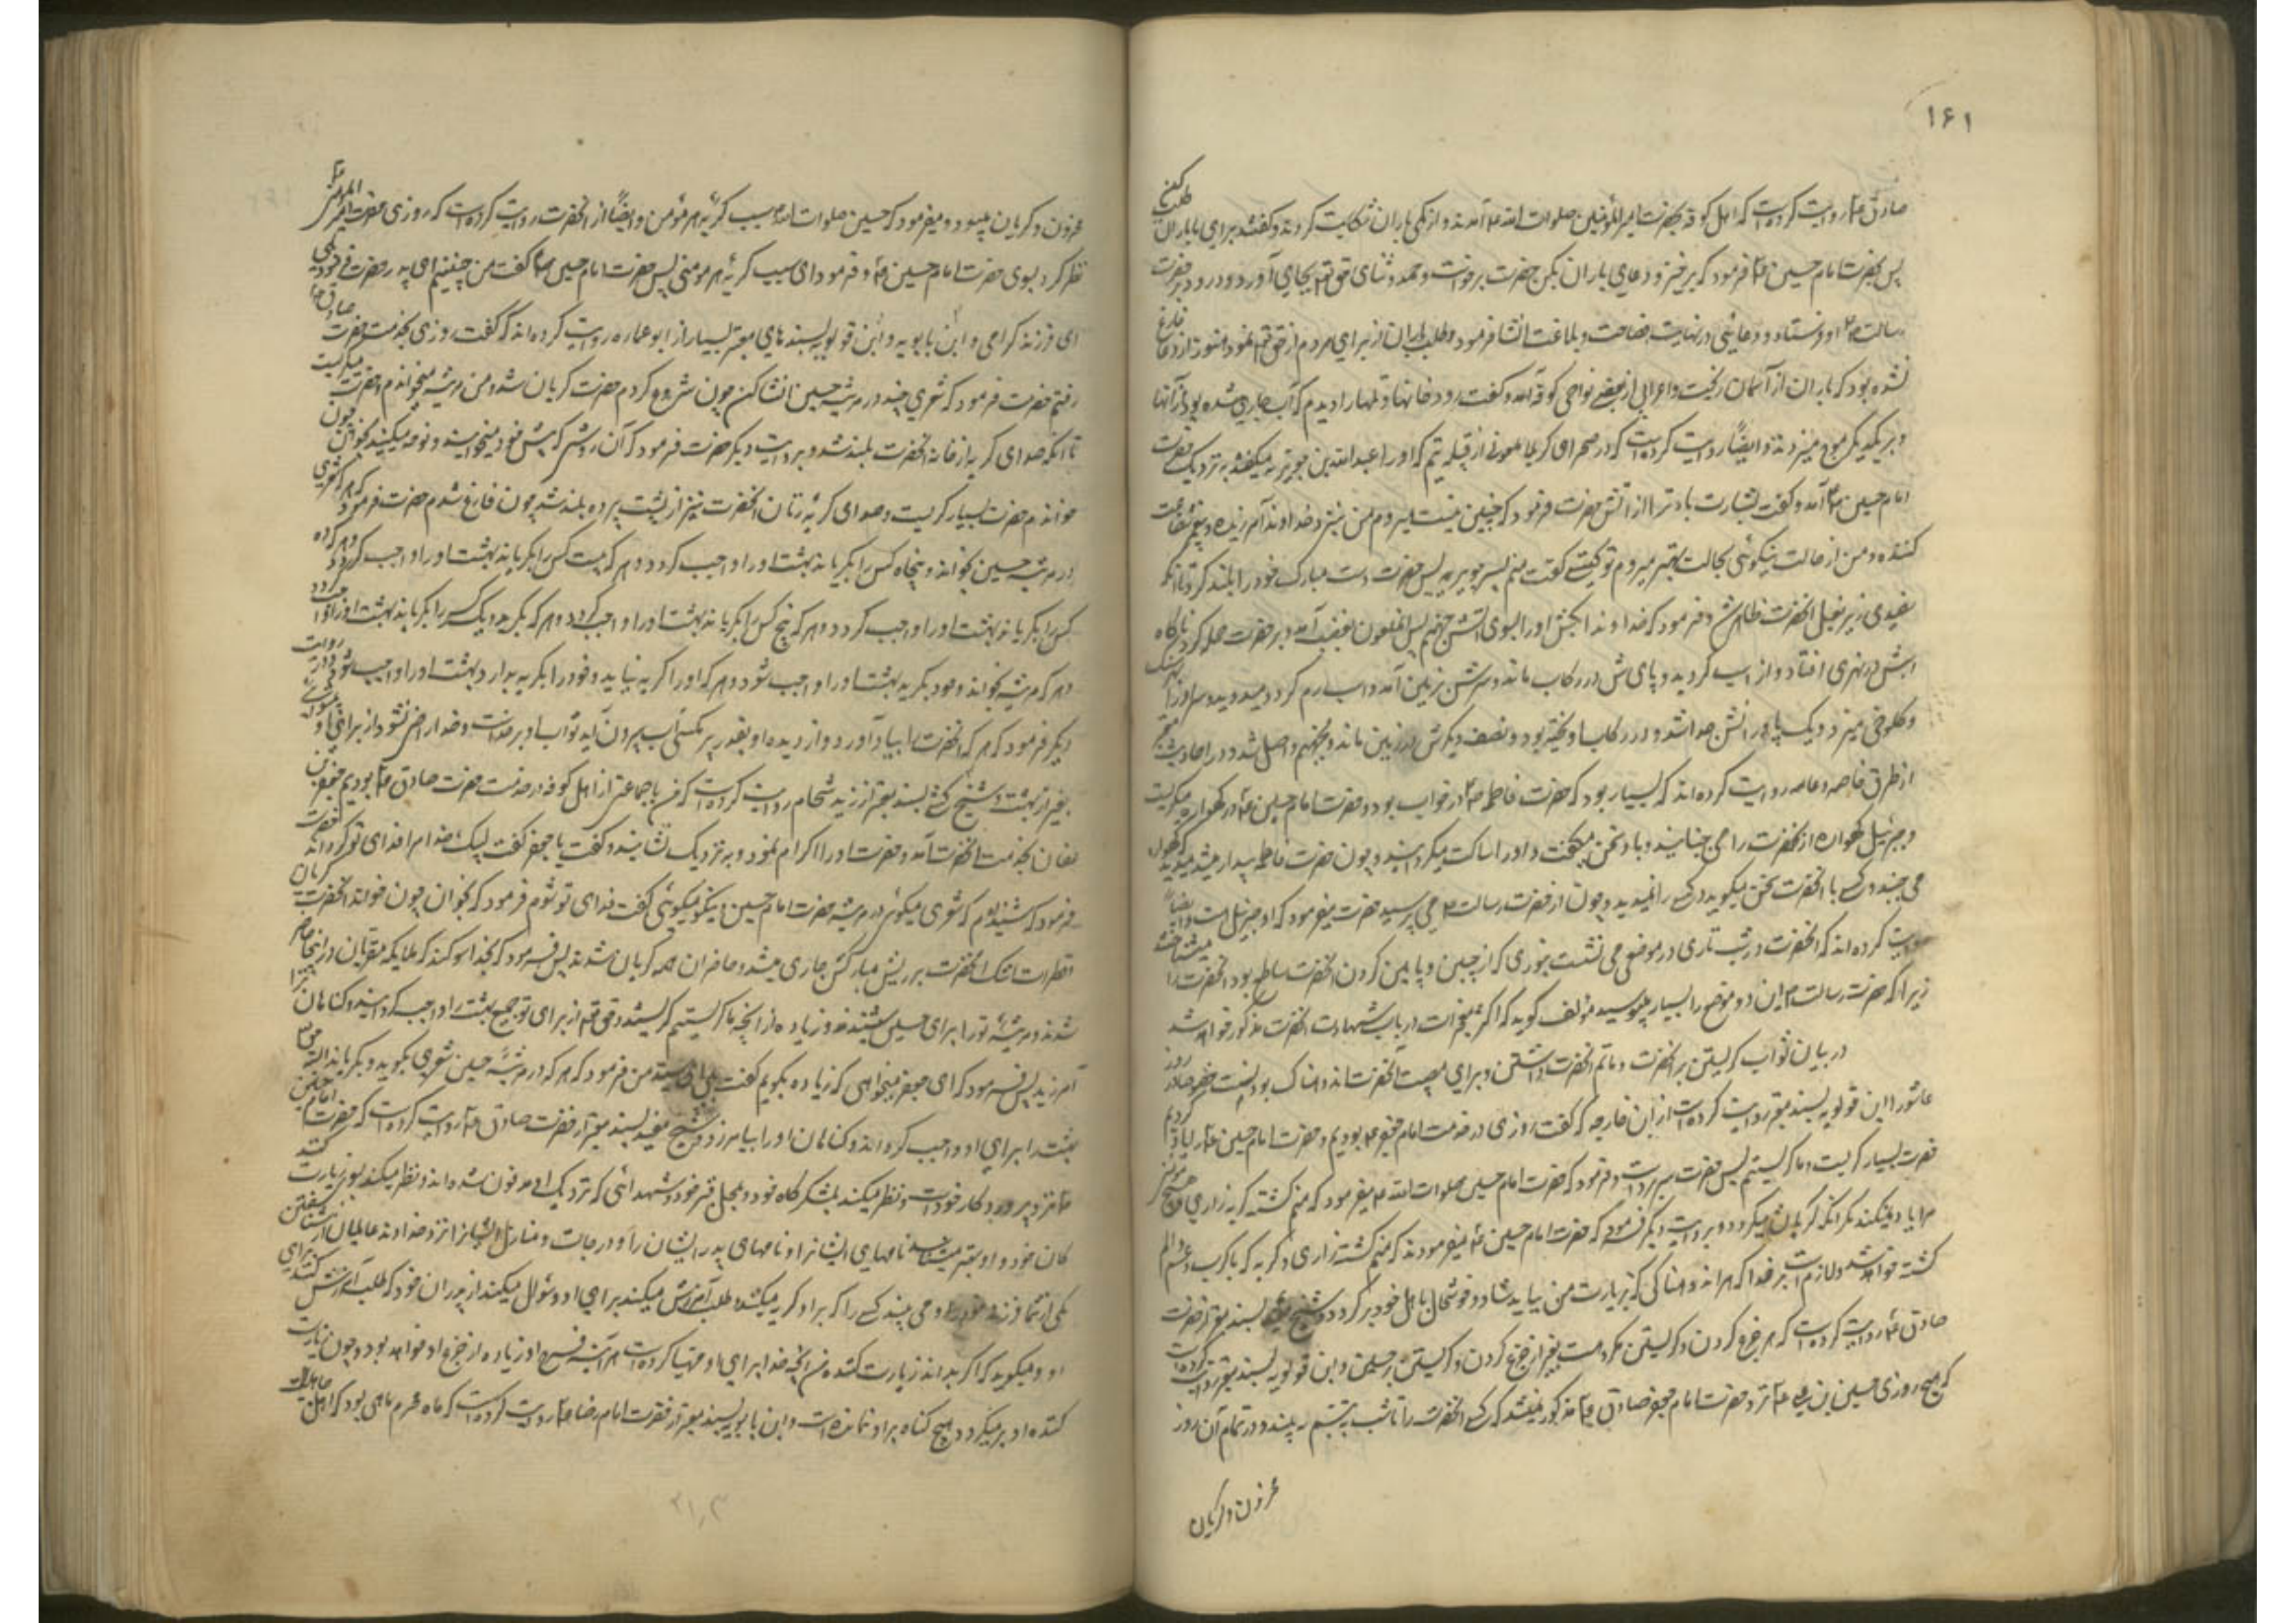 ۱۶۱
صادق ع روایت کرده است که اهل کوفه بحضرت امیر المؤمنین صلوات الله ع آمدند و از کمی باران شکایت کردند و گفتند برای ما باران طلب کن
پس بحضرت امام حسین ع فرمود که برخیز و دعای باران بکن حضرت برخواست و حمد و ثنای حق تع بجای آورد و درود بر حضرت
رسالت ص فرستاد و دعائی در نهایت فصاحت و بلاغت انشا فرمود و طلب باران از برای مردم از حق تع نمود هنوز از دعا فارغ
نشده بود که باران از آسمان ریخت و اعرابی از بعضی نواحی کوفه آمد و گفت رودخانها و تلها را دیدم که آب جاری شده بود از آنها
و بر یکدیگر موج میزدند و ایضاً روایت کرده است که در صحرای کربلا ملعونی از قبیله تیم که او را عبدالله بن جویریه میگفتند به نزدیک حضرت
امام حسین ع آمد و گفت بشارت باد ترا از آتش حضرت فرمود که چنین نیست میروم من بنزد خداوند آمرزنده و پیغمبر شفاعت
کننده و من از حالت نیکوئی بحالت بهتر میروم تو کیستی گفت منم پسر جویریه پس حضرت دست مبارک خود را بلند کرد تا آنکه
سفیدی زیر بغل آنحضرت ظاهر شد و فرمود که خداوندا بکش او را بسوی آتش جهنم پس آنملعون بغضب آمد و بر حضرت حمله کرد ناگاه
اسبش در نهری افتاد و از اسب گردید و پای ش در رکاب ماند و سرش بزمین آمد و اسب رم کرد و میدوید و سر او را بهر سنک
و کلوخی میزد و یک پا و رانش جدا شد و در رکاب آویخته بود و نصف دیگرش در زمین ماند و بجهنم واصل شد و در احادیث معتبر
از طرق خاصه و عامه روایت کرده اند که بسیار بود که حضرت فاطمه ع در خواب بود و حضرت امام حسین ع در گهواره میگریست
و جبرئیل گهواره آنحضرت را می جنبانید و با او سخن میگفت و او را ساکت میگردانید و چون حضرت فاطمه بیدار میشد میدید که گهواره
می جنبد و کسی با آنحضرت سخن میگوید و کسی را نمیدید و چون از حضرت رسالت ص می پرسید حضرت میفرمود که او جبرئیل است و ایضاً
روایت کرده اند که آنحضرت در شب تاری در موضعی می نشست بنوری که از جبین و پایین گردن آنحضرت ساطع بود آنحضرت را میشناختند
زیرا که حضرت رسالت ص این دو موضع را بسیار میبوسید مؤلف گوید که اکثر معجزات در باب شهادت آنحضرت مذکور خواهد شد
در بیان ثواب گریستن بر آنحضرت و ماتم آنحضرت داشتن و برای مصیبت آنحضرت اندوهناک بودنست خصوصاً در روز
عاشورا ابن قولویه بسند معتبر روایت کرده است از ابن خارجه که گفت روزی در خدمت امام جعفر ع بودیم و حضرت امام حسین ع را یاد کردیم
حضرت بسیار گریست و ما گریستیم پس حضرت سر برداشت و فرمود که حضرت امام حسین صلوات الله ع میفرمود که منم کشته گریه زاری هیچ مؤمنی
مرا یاد نمیکند مگر آنکه گریان میگردد و بروایت دیگر فرمود که حضرت امام حسین ع میفرمودند که منم کشته زاری و گریه که با کرب و غم و الم
کشته خواهم شد و لازم است بر خدا که هر اندوهناکی که بزیارت من بیاید شاد و خوشحال باهل خود برگردد و شیخ بسند معتبر از حضرت
صادق ع روایت کرده است که هر جزع کردن و گریستن مکروهست بغیر از جزع کردن و گریستن بر حسین و ابن قولویه بسند معتبر روایت کرده است
که هیچ روزی حسین بن علی ع نزد حضرت امام جعفر صادق ع مذکور نمیشد که کسی آنحضرت را تا شب متبسم ببیند و در تمام آن روز
محزون و گریان
محزون و گریان میبود و میفرمود که حسین صلوات الله ع سبب گریه هر مؤمن و ایضاً از آنحضرت روایت کرده است که روزی حضرت امیر المؤمنین ع
نظر کرد بسوی حضرت امام حسین ع و فرمود ای سبب گریه هر مومنی پس حضرت امام حسین ع گفت من چنینم ای پدر حضرت فرمود بلی
ای فرزند گرامی و ابن بابویه و ابن قولویه بسندهای معتبر بسیار از ابو عماره روایت کرده اند که گفت روزی بخدمت حضرت صادق ع
رفتم حضرت فرمود که شعری چند در مرثیه حسین انشا کن چون شروع کردم حضرت گریان شد و من مرثیه میخواندم و حضرت میگریست
تا آنکه صدای گریه از خانه آنحضرت بلند شد و بروایت دیگر حضرت فرمود که آن روش که پیش خود میخوانید و نوحه میکنید بخوان چون
خواندم حضرت بسیار گریست و صدای گریه زنان آنحضرت نیز از پشت پرده بلند شد چون فارغ شدم حضرت فرمود که هر که شعری
در مرثیه حسین بخواند و پنجاه کس را بگریاند بهشت او را واجب گردد و هر که بیست کس را بگریاند بهشت او را واجب گردد و هر که ده
کس را بگریاند بهشت او را واجب گردد و هر که پنج کس را بگریاند بهشت او را واجب گردد و هر که بگرید و یک کس را بگریاند بهشت او را واجب گردد
و هر که مرثیه بخواند و خود بگرید بهشت او را واجب شود و هر که او را گریه نیاید و خود را بگریه بدارد بهشت او را واجب شود و در روایت
دیگر فرمود که هر که آنحضرت را بیاد آورد و از دیده او بقدر پر مگسی آب بیرون آید ثواب او بر خداست و خدا راضی نشود از برای او ثوابی
بغیر از بهشت و شیخ کشی بسند معتبر از زید شحام روایت کرده است که من با جماعتی از اهل کوفه در خدمت حضرت صادق ع بودیم جعفر بن
عفان بخدمت آنحضرت آمد و حضرت او را اکرام نمود و به نزدیک نشانید و گفت یا جعفر گفت لبیک خدا مرا فدای تو گرداند حضرت
فرمود که شنیده ام که شعری میگوئی در مرثیه حضرت امام حسین و نیکو میگوئی گفت فدای تو شوم فرمود که بخوان چون خواند آنحضرت گریان
قطرات اشک آنحضرت بر ریش مبارکش جاری میشد و حاضران همه گریان شدند پس فرمود که بخدا سوگند که ملایکه مقربان در اینجا حاضر
شدند و مرثیه تو را برای حسین شنیدند و زیاده از آنچه ما گریستیم گریستند و حق تع از برای تو جمیع بهشت را واجب گردانید و گناهان ترا
آمرزید پس فرمود که ای جعفر میخواهی که زیاده بگویم گفت بلی ای سید من فرمود که هر که در مرثیه حسین شعری بگوید و بگریاند البته حق تع
بهشت را برای او واجب گرداند و گناهان او را بیامرزد و شیخ مفید بسند معتبر از حضرت صادق ع روایت کرده است که حضرت امام حسین
ع نزد پرورد کار خود است و نظر میکند بلشکرگاه خود و بمحل قبر خود و شهدائی که نزدیک او مدفون شده اند و نظر میکند بسوی زیارت کنند
گان خود و او بهتر میشناسد نامهای ایشانرا و نامهای پدر ایشان را و درجات و منازل ایشانرا نزد خداوند عالمیان از شناختن
یکی از شما فرزند خود را و می بیند کسی را که بر او گریه میکند و طلب آمرزش میکند برای او و سؤال میکند از پدران خود که طلب آمرزش کنند برای
او و میگوید که اگر بداند زیارت کننده من آنچه خدا برای او مهیا کرده است هر آینه فرح او زیاده از جزع او خواهد بود و چون زیارت
کننده او بر میگردد هیچ گناه بر او نمانده است و ابن بابویه بسند معتبر از حضرت امام رضا ع روایت کرده است که ماه محرم ماهی بود که اهل جاهلیت